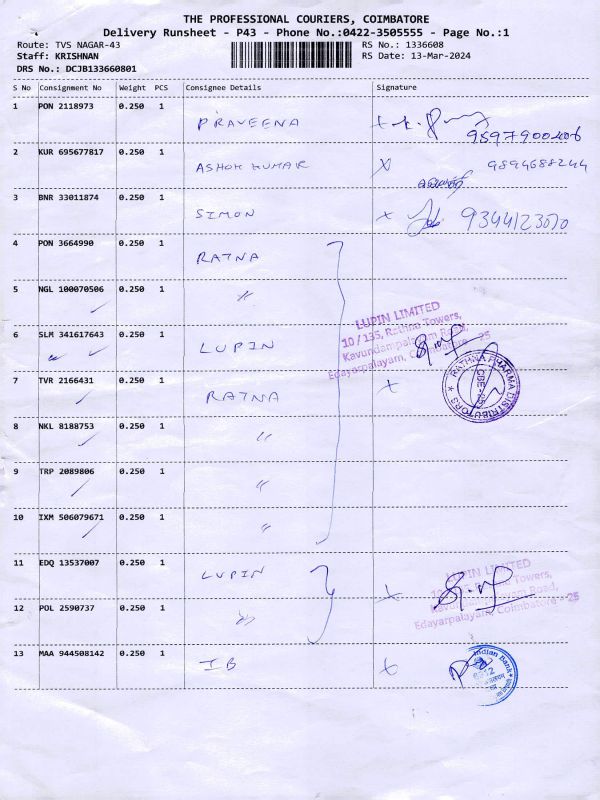 THE PROFESSIONAL COURIERS, COIMBATORE
Delivery Runsheet - P43 - Phone No.:0422-3505555 - Page No.:1
Route: TVS NAGAR-43 RS No.: 1336608
Staff: KRISHNAN RS Date: 13-Mar-2024
DRS No.: DCJB133660801
S No Consignment No Weight PCS Consignee Details Signature
1 PON 2118973 0.250 1 PRAVEENA
2 KUR 695677817 0.250 1 ASHOK KUMAR 9894688244
3 BNR 33011874 0.250 1 SIMON
4 PON 3664990 0.250 1 RATNA
5 NGL 100070506 0.250 1 "
LUPIN LIMITED
10 / 135, Rathna Towers,
Kavundampalayam Road,
Edayarpalayam, Coimbatore - 25
6 SLM 341617643 0.250 1 LUPIN
RATHNA PHARMA DISTRIBUTORS
CBE-25
7 TVR 2166431 0.250 1 RATNA
8 NKL 8188753 0.250 1 "
9 TRP 2089806 0.250 1 "
10 IXM 506079671 0.250 1 "
11 EDQ 13537007 0.250 1 LUPIN
LUPIN LIMITED
Towers,
Road,
Edayarpalayam, Coimbatore - 25
12 POL 2590737 0.250 1 "
13 MAA 944508142 0.250 1 IB
Indian Bank